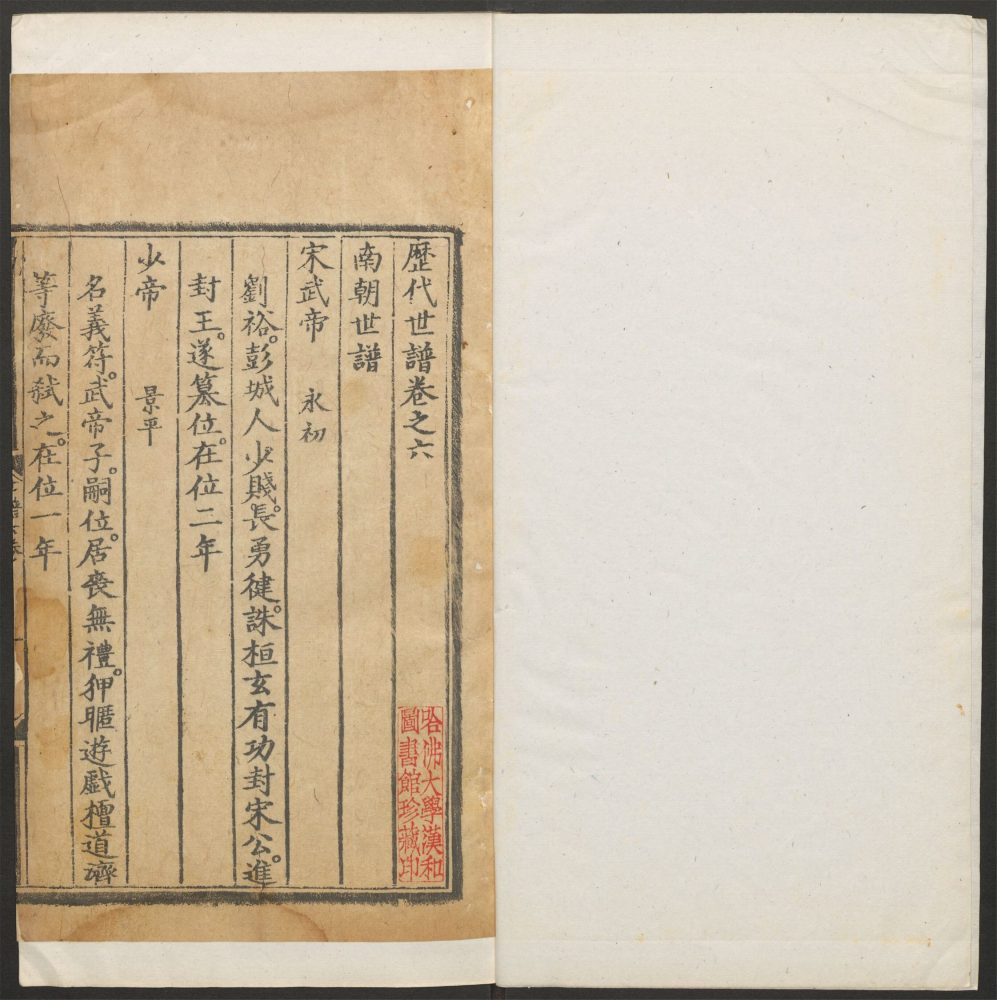 歷代世譜卷之六
南朝世譜
宋武帝 永初
劉裕。彭城人少賤。長勇健。誅桓玄有功封宋公。進
封王。遂簒位。在位二年
少帝 景平
名義符。武帝子。嗣位。居喪無禮。狎暱遊戱檀道濟
等廢而弑之。在位一年
哈佛大學漢和
圖書館珍藏印